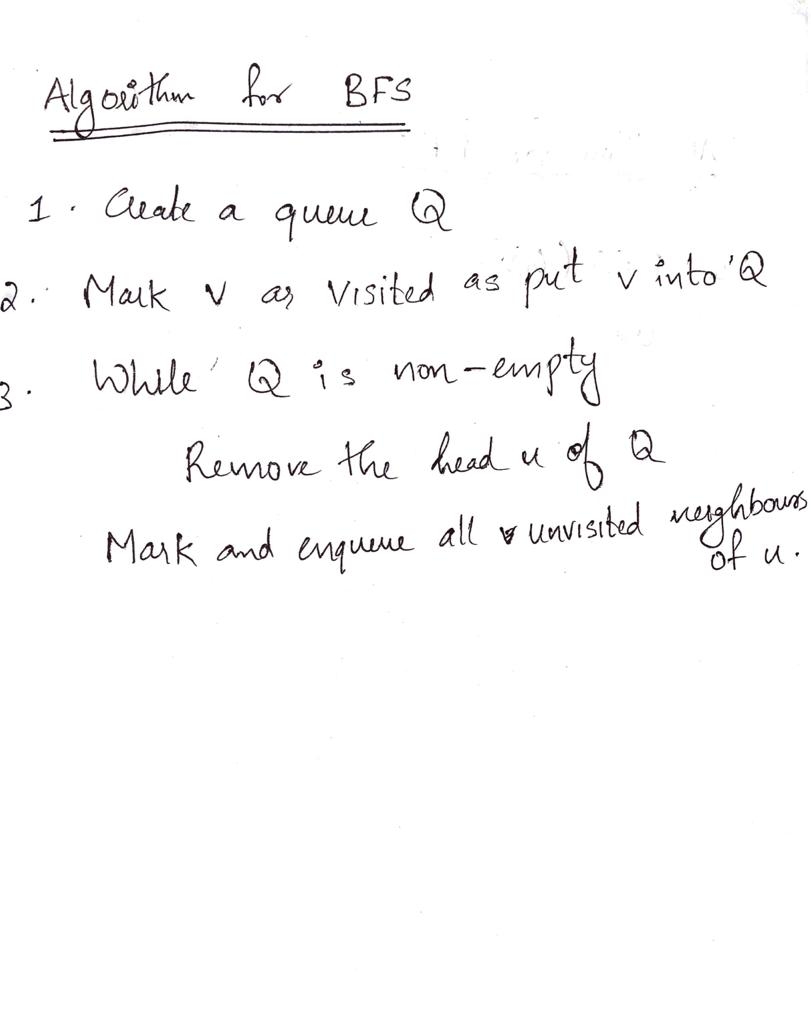 Algorithm for BFS
1. Create a queue Q
2. Mark v as visited as put v into Q
3. While Q is non-empty
Remove the head u of Q
Mark and enqueue all unvisited neighbours
of u.